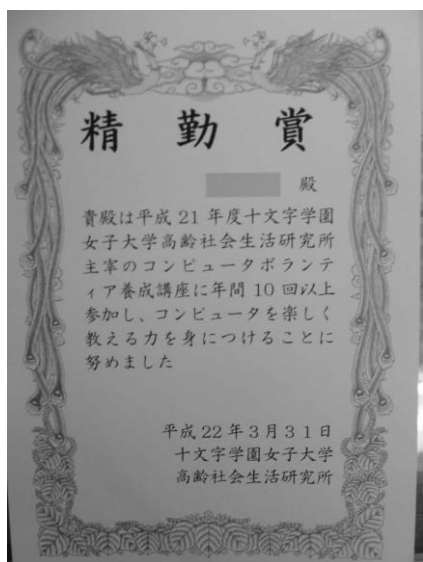 精勤賞
殿
貴殿は平成21年度十文字学園
女子大学高齢社会生活研究所
主宰のコンピュータボランテ
ィア養成講座に年間10回以上
参加し、コンピュータを楽しく
教える力を身につけることに
努めました
平成22年3月31日
十文字学園女子大学
高齢社会生活研究所